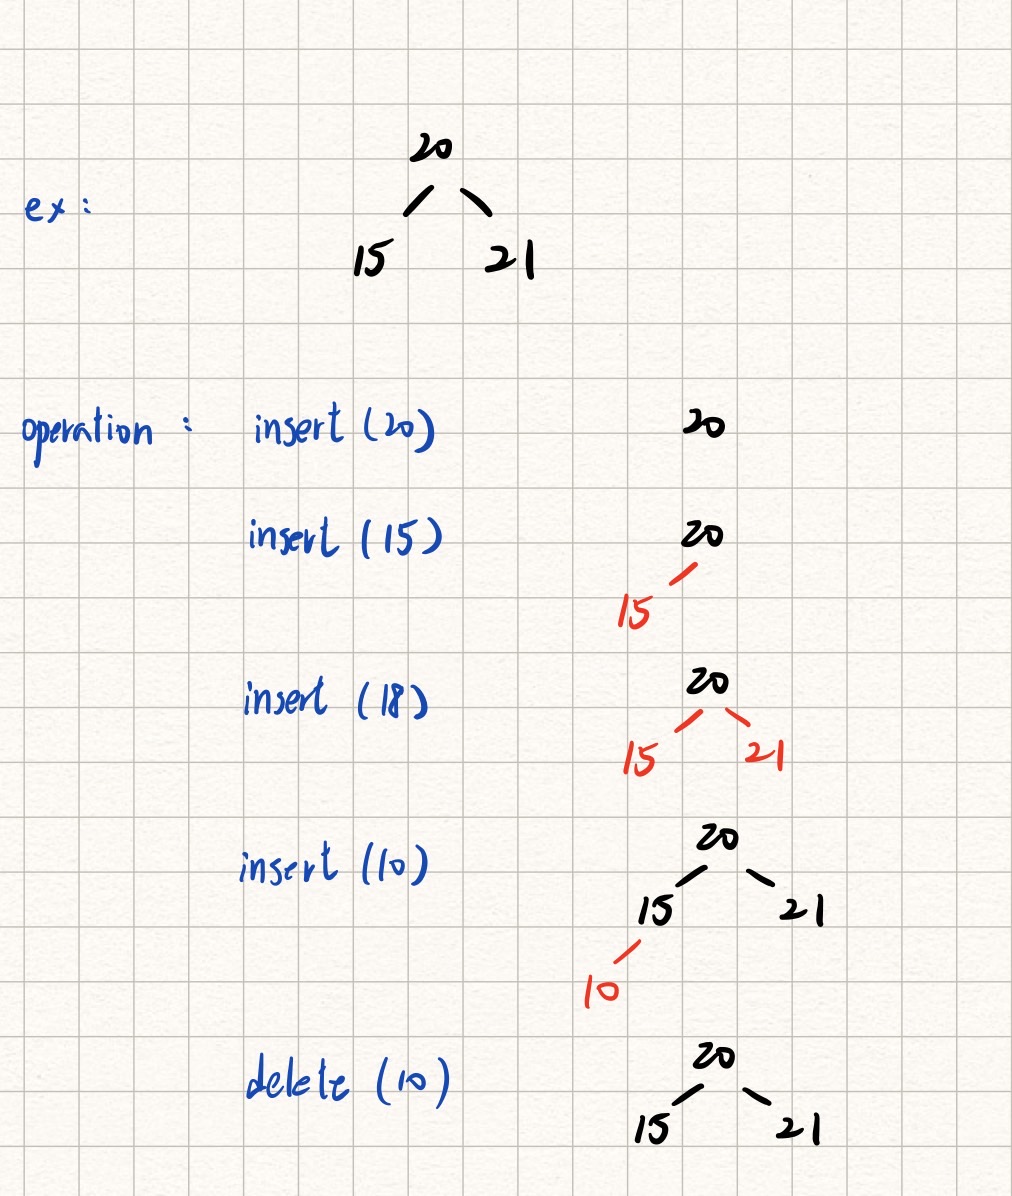 20
ex:
15 21
operation: insert (20) 20
insert (15) 20
15
insert (18) 20
15 21
insert (10) 20
15 21
10
delete (10) 20
15 21